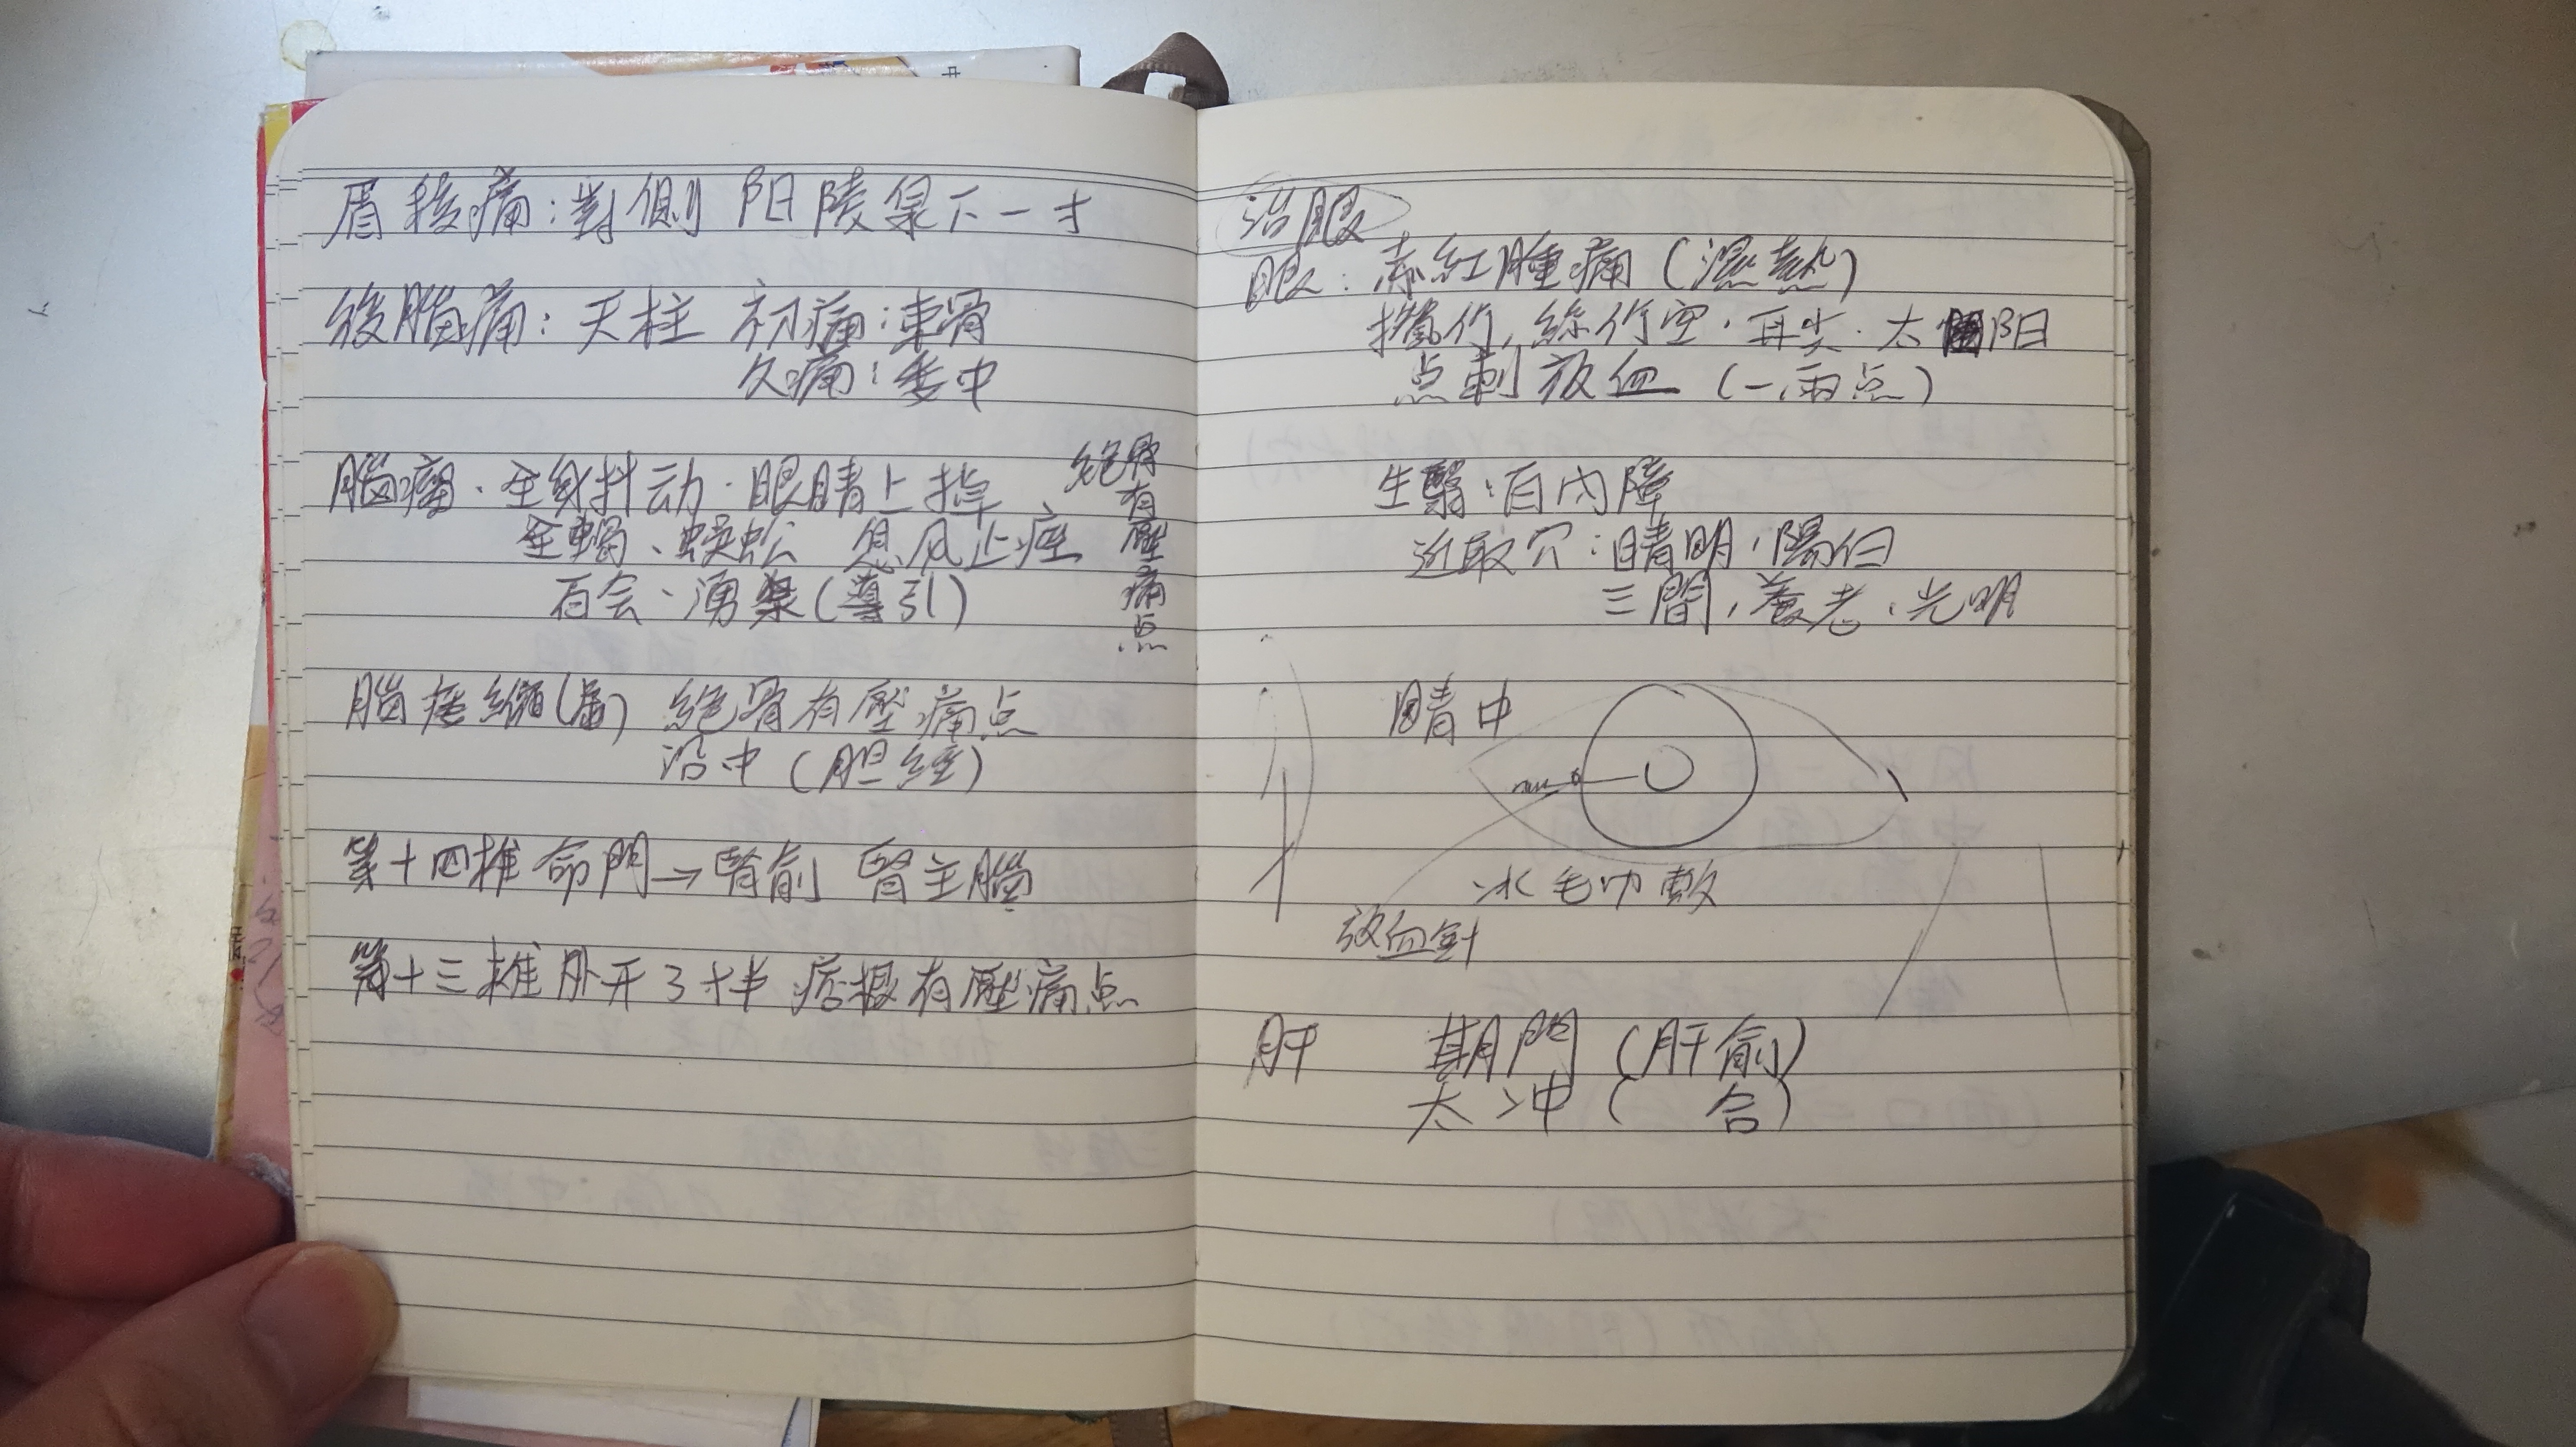 眉稜痛：對側 阳陵泉下一寸
後腦痛：天柱 初痛：束骨
久痛：委中
腦瘤．全身抖动．眼睛上掉
全蝎、蜈蚣 息风止痙
百会、湧泉（導引）
絕骨有壓痛点
腦痿縮（漏）絕骨有壓痛点
沿中（胆经）
第十四椎 命門→腎俞 腎主腦
第十三椎 外开3寸半 痞根有壓痛点
治眼
眼：赤红腫痛（濕热）
攢竹，絲竹空．耳尖．太阳
点刺放血（一,兩点）
生翳：白內障
近取穴：睛明，陽白
三間，養老、光明
睛中
冰毛巾敷
放血針
肝 期門（肝俞）
太冲（ 合）